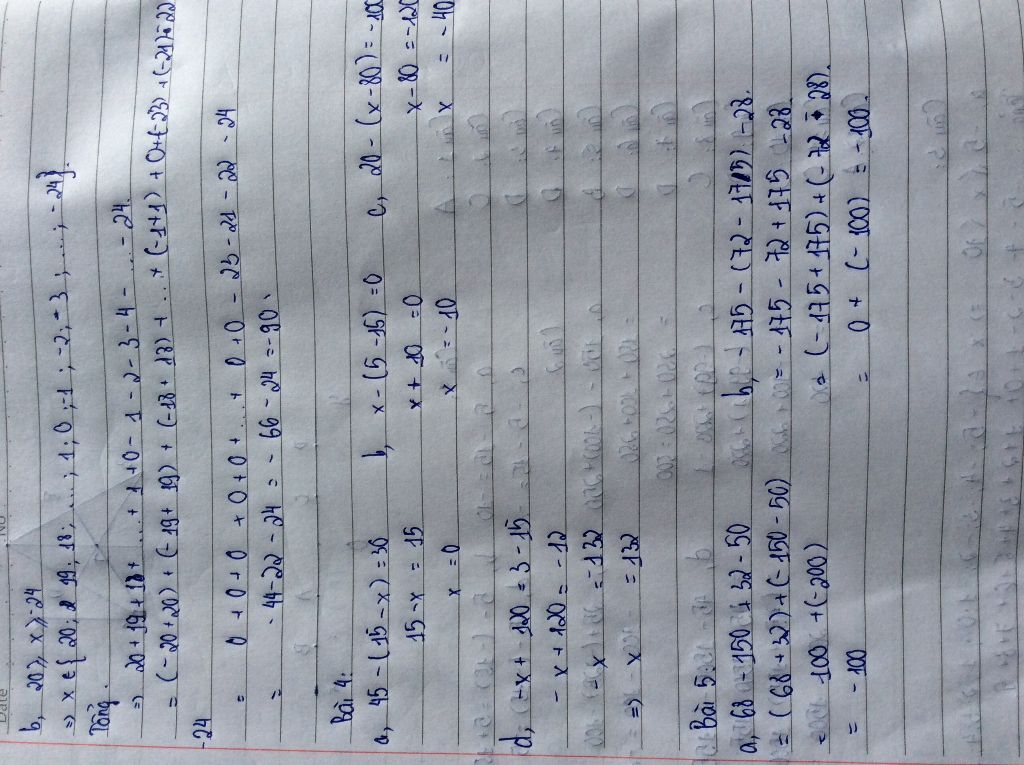 Date
No
b, 20 ≥ x ≥ -24
=> x ∈ { 20; 19; 18; ...; 1; 0; -1; -2; -3; ...; -24}.
Tổng.
=> 20 + 19 + 18 + ... + 1 + 0 - 1 - 2 - 3 - 4 - ... - 24.
= (-20 + 20) + (-19 + 19) + (-18 + 18) + ... + (-1+1) + 0 + (-23) + (-21) + -22
-24
= 0 + 0 + 0 + 0 + 0 + ... + 0 + 0 - 23 - 21 - 22 - 24
= -44 - 22 - 24 = -66 - 24 = -90.
Bài 4:
a, 45 - (15 - x) = 30 b, x - (5 - 15) = 0 c, 20 - (x - 80) = -100
15 - x = 15 x + 10 = 0 x - 80 = -120
x = 0 x = -10 x = -40
d, (-x + 120 = 3 - 15
- x + 120 = -12
-x = -132
=> x = 132
Bài 5:
a, 68 - 150 + 32 - 50 b, - 175 - (72 - 175) - 28.
= (68 + 32) + (-150 - 50) = -175 - 72 + 175 - 28.
= 100 + (-200) = (-175 + 175) + (-72 - 28).
= -100 = 0 + (-100) = -100.